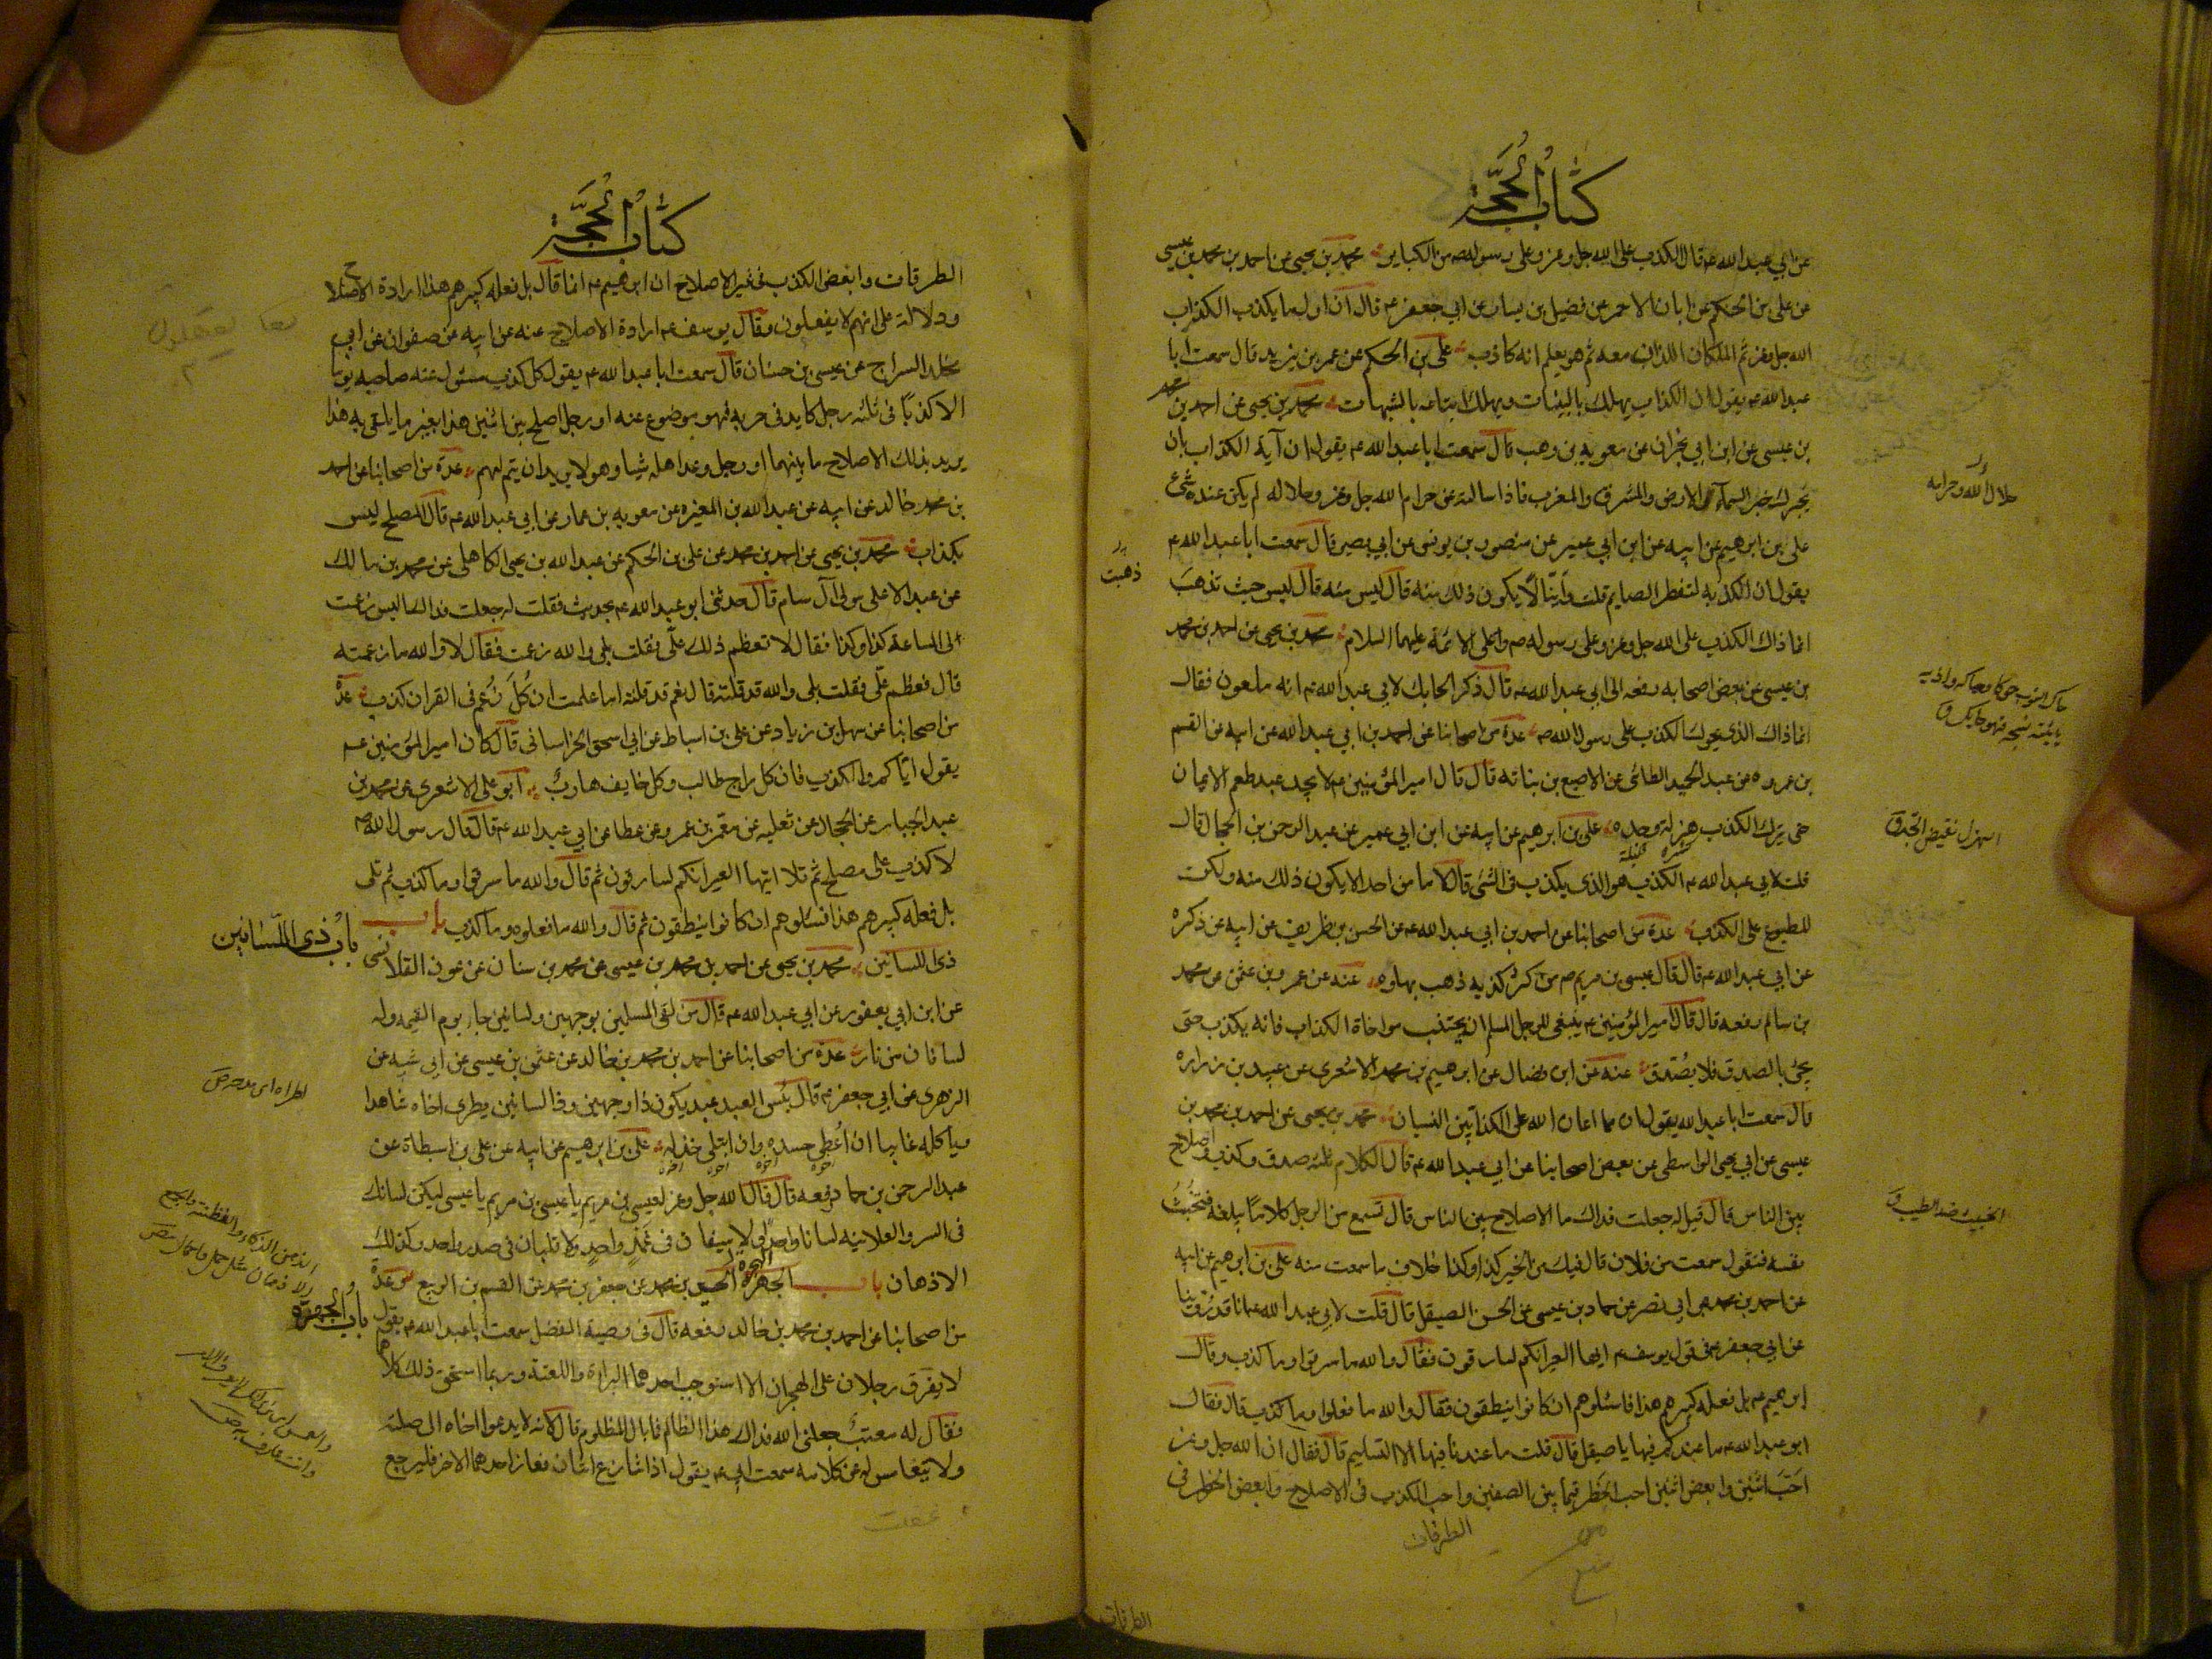 كتاب الحجة
عن ابي عبد الله عم قال الكذب على الله جل وعز وعلى رسوله ص من الكباير محمد بن يحيى عن احمد بن محمد بن عيسى
عن علي بن الحكم عن ابان الاحمر عن فضيل بن يسار عن ابي جعفر عم قال ان اول ما يكذب الكذاب
الله جل وعز ثم الملكان اللذان معه ثم هو يعلم انه كاذب علي بن الحكم عن عمر بن يزيد قال سمعت ابا
عبد الله عم يقول ان الكذاب يهلك بالبينات ويهلك اتباعه بالشبهات محمد بن يحيى عن احمد بن محمد
بن عيسى عن ابن ابي نجران عن معويه بن وهب قال سمعت ابا عبد الله عم يقول ان آية الكذاب بان
يخبرك خبر السماء والارض والمشرق والمغرب فاذا سالته عن حرام الله جل وعز وحلاله لم يكن عنده شيء
حلال الله وحرامه
علي بن ابرهيم عن ابيه عن ابن ابي عمير عن منصور بن يونس عن ابي بصير قال سمعت ابا عبد الله عم
يقول ان الكذبه لتفطر الصايم قلت واينا لا يكون ذلك منه قال ليس حيث تذهب
ذهبت
انما ذاك الكذب على الله جل وعز وعلى رسوله ص وعلى الائمة عليهم السلام محمد بن يحيى عن احمد بن محمد
بن عيسى عن بعض اصحابه رفعه الى ابي عبد الله عم قال ذكر الحايك لابي عبد الله عم انه ملعون فقال
انما ذاك الذي يحوك الكذب على رسول الله ص عدة من اصحابنا عن احمد بن ابي عبد الله عن ابيه عن القسم
بن عروه عن عبد الحميد الطائي عن الاصبغ بن نباته قال قال امير المؤمنين عم لا يجد عبد طعم الايمان
حتى يترك الكذب هزله وجده علي بن ابرهيم عن ابيه عن ابن ابي عمير عن عبد الرحمن بن الحجاج قال
الهزل نقيض الجد ق
قلت لابي عبد الله عم الكذاب هو الذي يكذب في الشيء قال لا ما من احد الا يكون ذلك منه ولكن
المطبوع على الكذب عدة من اصحابنا عن احمد بن ابي عبد الله عن الحسن بن ظريف عن ابيه عن ذكره
عن ابي عبد الله عم قال قال عيسى بن مريم عم من كثر كذبه ذهب بهاوه عنه عن عمرو بن عثمن عن محمد
بن سالم رفعه قال قال امير المؤمنين عم ينبغي للرجل المسلم ان يجتنب مواخاة الكذاب فانه يكذب حتى
يجيء بالصدق فلا يصدق عنه عن ابن فضال عن ابرهيم بن محمد الاشعري عن عبيد بن زراره
قال سمعت ابا عبد الله يقول ان مما اعان الله على الكذابين النسيان محمد بن يحيى عن احمد بن محمد بن
عيسى عن ابي يحيى الواسطي عن بعض اصحابنا عن ابي عبد الله عم قال الكلام ثلثه صدق وكذب واصلاح
بين الناس قال قيل له جعلت فداك ما الاصلاح بين الناس قال تسمع من الرجل كلاما يبلغه فتخبث
الخبيث ضد الطيب ق
نفسه فتقول سمعت من فلان قال فيك من الخير كذا وكذا خلاف ما سمعت منه علي بن ابرهيم عن ابيه
عن احمد بن محمد بن ابي نصر عن حماد بن عيسى عن الحسن الصيقل قال قلت لابي عبد الله عم انا قد روينا
عن ابي جعفر عم في قول يوسف عم ايتها العير انكم لسارقون فقال والله ما سرقوا وما كذب وقال
ابرهيم عم بل فعله كبيرهم هذا فاسئلوهم ان كانوا ينطقون فقال والله ما فعلوا وما كذب قال فقال
ابو عبد الله عم ما عندكم فيها يا صيقل قال قلت ما عندنا فيها الا التسليم قال فقال ان الله جل وعز
احب اثنين وابغض اثنين احب الخطر فيما بين الصفين واحب الكذب في الاصلاح وابغض الخطر في
الطرقات
كتاب الحجة
الطرقات وابغض الكذب في غير الاصلاح ان ابرهيم عم انما قال بل فعله كبيرهم هذا ارادة الاصلاح
ودلالة على انهم لا يفعلون وقال يوسف عم ارادة الاصلاح عنه عن ابيه عن صفوان عن ابي
مخلد السراج عن عيسى بن حسان قال سمعت ابا عبد الله عم يقول كل كذب مسئول عنه صاحبه يوما
الا كذبا في ثلثه رجل كايد في حربه فهو موضوع عنه او رجل اصلح بين اثنين يلقى هذا بغير ما يلقى به هذا
يريد بذلك الاصلاح ما بينهما او رجل وعد اهله شيا وهو لا يريد ان يتم لهم عدة من اصحابنا عن احمد
بن محمد خالد عن ابيه عن عبد الله بن المغيره عن معويه بن عمار عن ابي عبد الله عم قال المصلح ليس
بكذاب محمد بن يحيى عن احمد بن محمد عن علي بن الحكم عن عبد الله بن يحيى الكاهلي عن محمد بن مالك
عن عبد الاعلى مولى آل سام قال حدثني ابو عبد الله عم بحديث فقلت له جعلت فداك اليس زعمت
لي الساعة كذا وكذا فقال لا فعظم ذلك علي فقلت بلى والله زعمت فقال لا والله ما زعمته
قال فعظم علي فقلت بلى والله قد قلته قال نعم قد قلته اما علمت ان كل زعم في القران كذب عدة
من اصحابنا عن سهل بن زياد عن علي بن اسباط عن ابي اسحق الخراساني قال كان امير المؤمنين عم
يقول اياكم والكذب فان كل راج طالب وكل خايف هارب ابو علي الاشعري عن محمد بن
عبد الجبار عن الحجال عن ثعلبه عن معمر بن عمرو عن عطا عن ابي عبد الله عم قال قال رسول الله ص
لا كذب على مصلح ثم تلا ايتها العير انكم لسارقون ثم قال والله ما سرقوا وما كذب ثم تلى
بل فعله كبيرهم هذا فسئلوهم ان كانوا ينطقون ثم قال والله ما فعلوه وما كذب باب
باب ذي اللسانين
ذي اللسانين محمد بن يحيى عن احمد بن محمد بن عيسى عن محمد بن سنان عن عون القلانسي
عن ابن ابي يعفور عن ابي عبد الله عم قال من لقي المسلمين بوجهين ولسانين جاء يوم القيمه وله
لسانان من نار عدة من اصحابنا عن احمد بن محمد بن خالد عن عثمن بن عيسى عن ابي شيبه عن
الزهري عن ابي جعفر عم قال بئس العبد عبد يكون ذا وجهين وذا لسانين يطري اخاه شاهدا
وياكله غايبا ان اعطي حسده وان ابتلي خذله علي بن ابرهيم عن ابيه عن علي بن اسباط عن
عبد الرحمن بن حماد رفعه قال قال الله جل وعز لعيسى بن مريم يا عيسى ليكن لسانك
في السر والعلانيه لسانا واحدا لا سيفان في غمد واحد ولا قلبان في صدر واحد وكذلك
الاذهان باب الهجرة الحسين بن محمد عن جعفر بن محمد عن القسم بن الربيع عدة
باب الهجرة
من اصحابنا عن احمد بن محمد بن خالد رفعه قال في وصية المفضل سمعت ابا عبد الله عم يقول
لا يفترق رجلان على الهجران الا استوجب احدهما البراءة واللعنة وربما استحق ذلك كلاهما
فقال له معتب جعلني الله فداك هذا الظالم فما بال المظلوم قال لانه لا يدعوا اخاه الى صلته
ولا يتغامس له عن كلامه سمعت ابي عم يقول اذا تنازع اثنان فعاز احدهما الاخر فليرجع